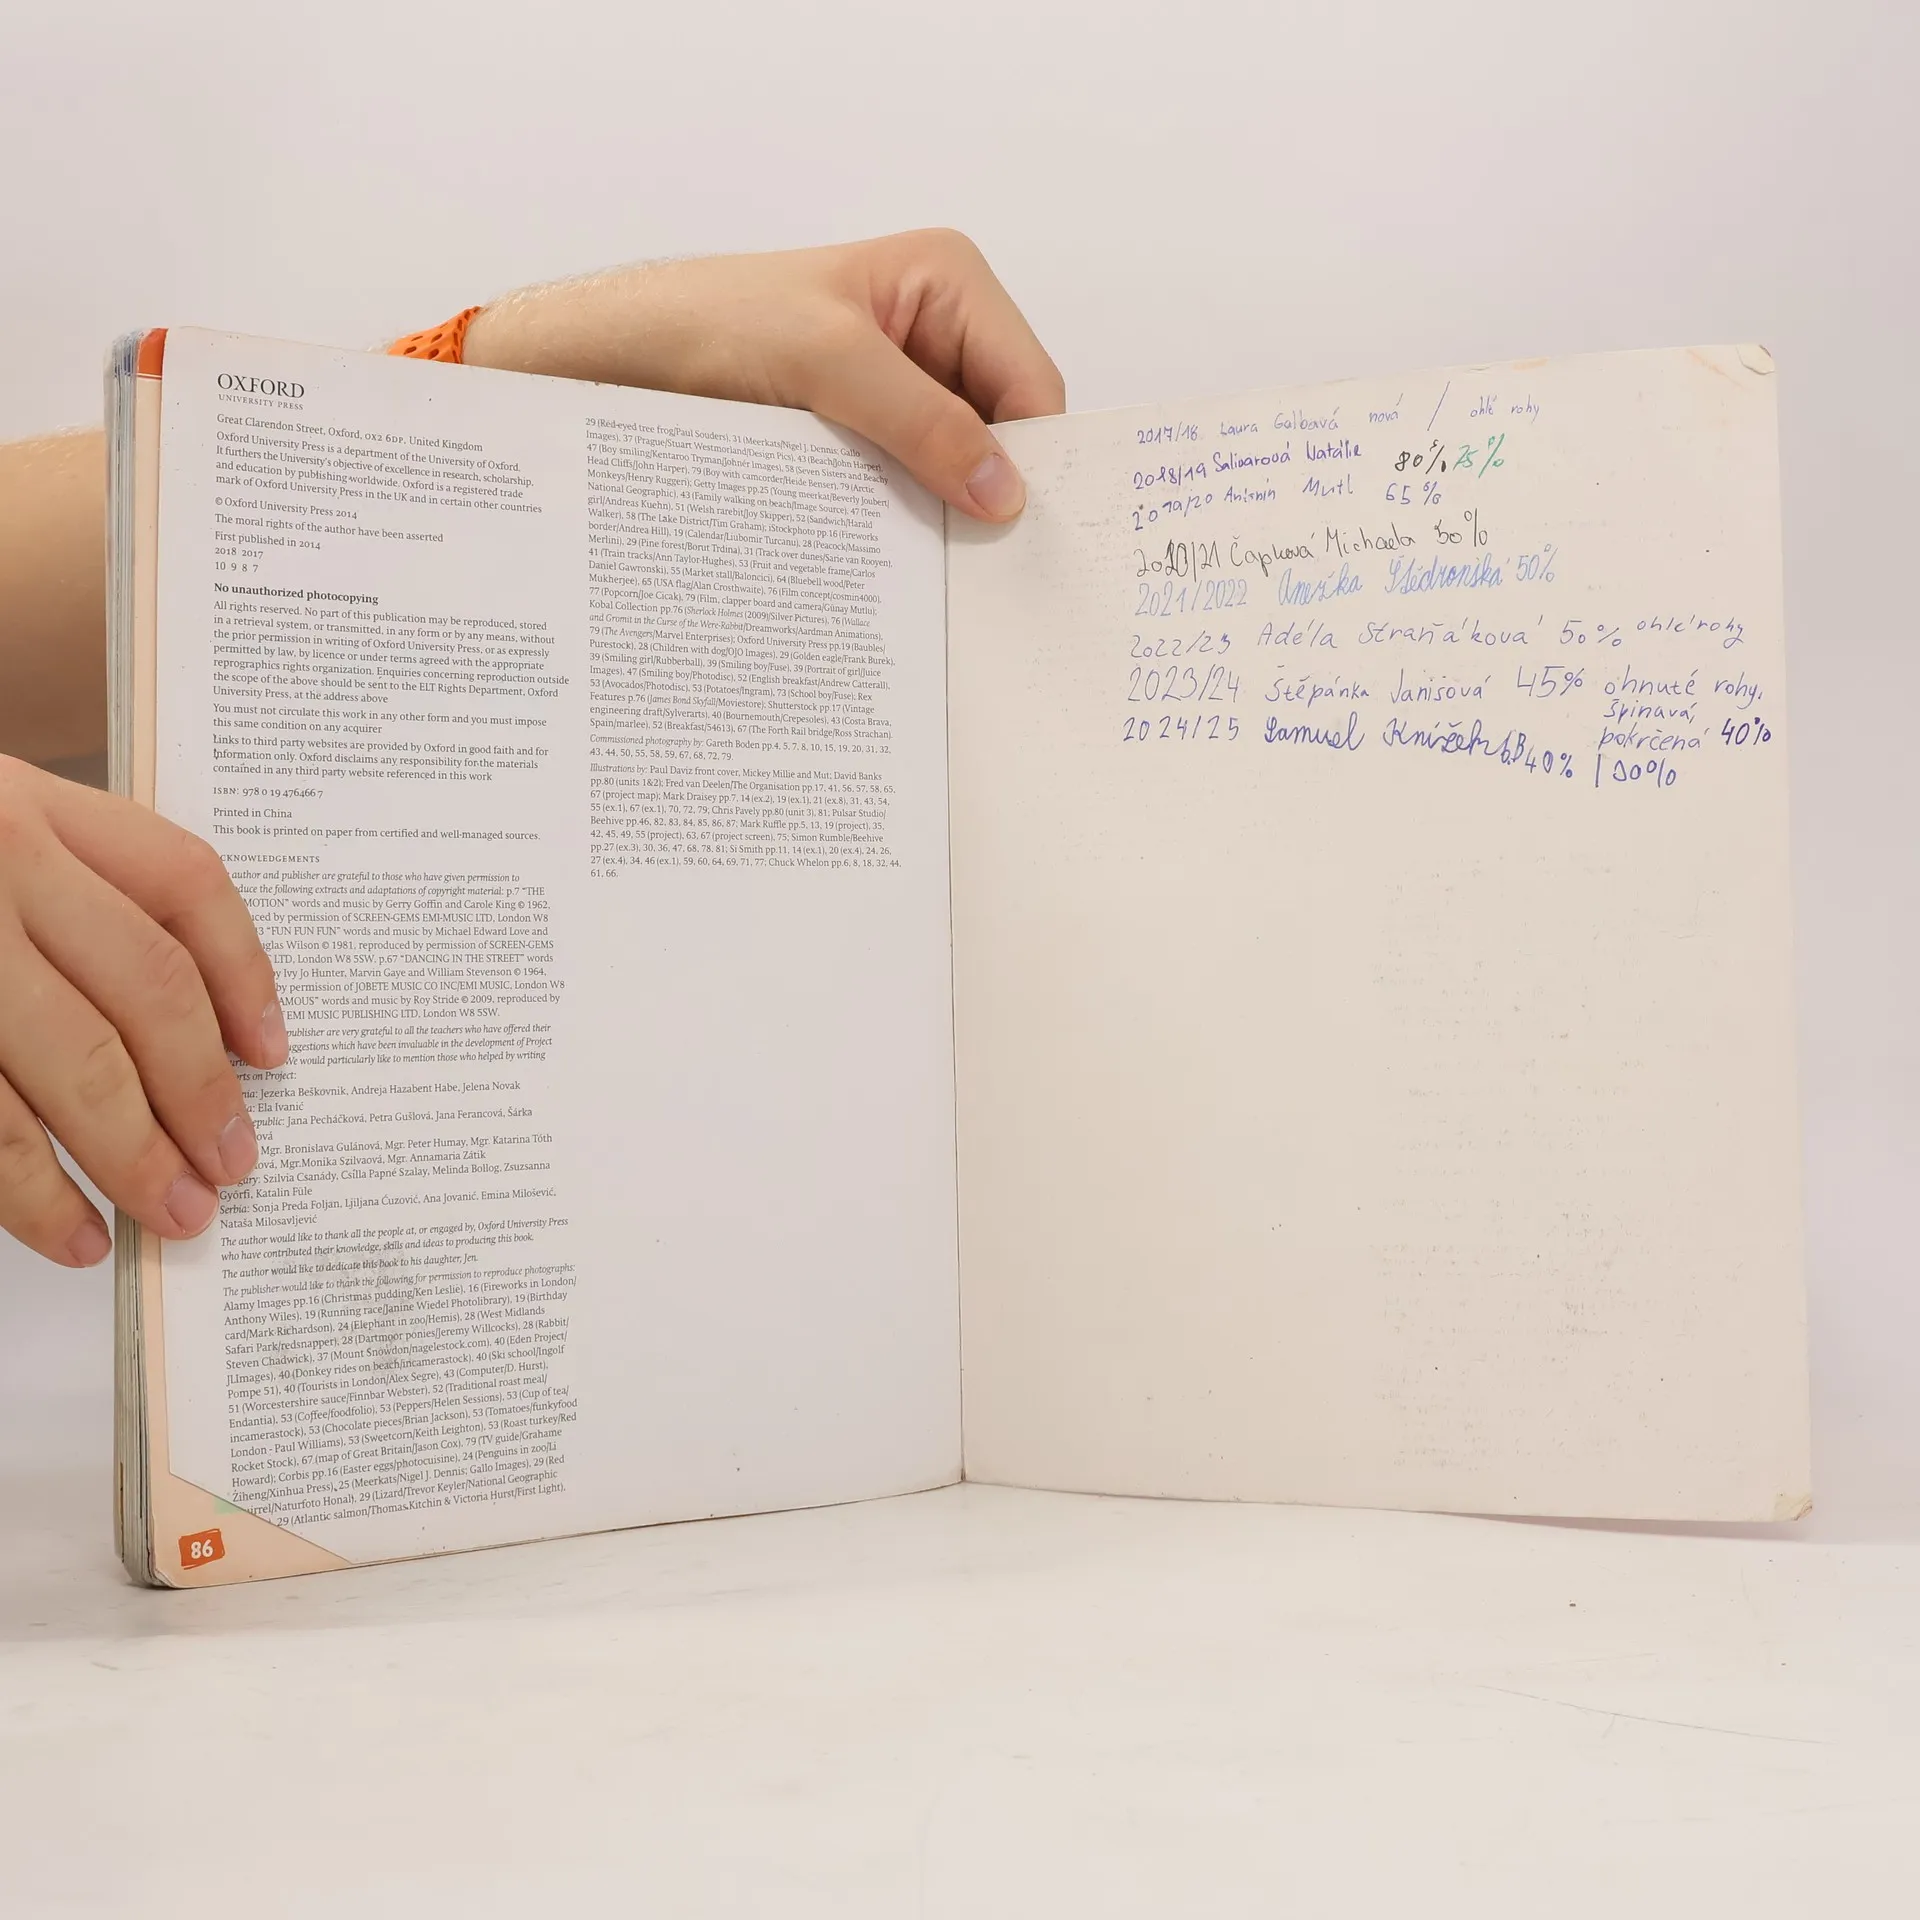 OXFORD
UNIVERSITY PRESS
Great Clarendon Street, Oxford, OX2 6DP, United Kingdom
Oxford University Press is a department of the University of Oxford.
It furthers the University's objective of excellence in research, scholarship,
and education by publishing worldwide. Oxford is a registered trade
mark of Oxford University Press in the UK and in certain other countries
© Oxford University Press 2014
The moral rights of the author have been asserted
First published in 2014
2018 2017
10 9 8 7
No unauthorized photocopying
All rights reserved. No part of this publication may be reproduced, stored
in a retrieval system, or transmitted, in any form or by any means, without
the prior permission in writing of Oxford University Press, or as expressly
permitted by law, by licence or under terms agreed with the appropriate
reprographics rights organization. Enquiries concerning reproduction outside
the scope of the above should be sent to the ELT Rights Department, Oxford
University Press, at the address above
You must not circulate this work in any other form and you must impose
this same condition on any acquirer
Links to third party websites are provided by Oxford in good faith and for
information only. Oxford disclaims any responsibility for the materials
contained in any third party website referenced in this work
ISBN: 978 0 19 476466 7
Printed in China
This book is printed on paper from certified and well-managed sources.
CKNOWLEDGEMENTS
author and publisher are grateful to those who have given permission to
duce the following extracts and adaptations of copyright material: p.7 "THE
MOTION" words and music by Gerry Goffin and Carole King © 1962,
uced by permission of SCREEN-GEMS EMI-MUSIC LTD, London W8
13 "FUN FUN FUN" words and music by Michael Edward Love and
uglas Wilson © 1981, reproduced by permission of SCREEN-GEMS
LTD, London W8 5SW. p.67 "DANCING IN THE STREET" words
y Ivy Jo Hunter, Marvin Gaye and William Stevenson © 1964,
by permission of JOBETE MUSIC CO INC/EMI MUSIC, London W8
AMOUS" words and music by Roy Stride © 2009, reproduced by
EMI MUSIC PUBLISHING LTD, London W8 5SW.
publisher are very grateful to all the teachers who have offered their
uggestions which have been invaluable in the development of Project
We would particularly like to mention those who helped by writing
rts on Project:
nia: Jezerka Beškovnik, Andreja Hazabent Habe, Jelena Novak
a: Ela Ivanić
epublic: Jana Pecháčková, Petra Gušlová, Jana Ferancová, Šárka
ová
Mgr. Bronislava Gulánová, Mgr. Peter Humay, Mgr. Katarina Tóth
lová, Mgr.Monika Szilvaová, Mgr. Annamaria Zátik
gary: Szilvia Csanády, Csilla Papné Szalay, Melinda Bollog, Zsuzsanna
Győrfi, Katalin Füle
Serbia: Sonja Preda Foljan, Ljiljana Ćuzović, Ana Jovanić, Emina Milošević,
Nataša Milosavljević
The author would like to thank all the people at, or engaged by, Oxford University Press
who have contributed their knowledge, skills and ideas to producing this book.
The author would like to dedicate this book to his daughter, Jen.
The publisher would like to thank the following for permission to reproduce photographs:
Alamy Images pp.16 (Christmas pudding/Ken Leslie), 16 (Fireworks in London/
Anthony Wiles), 19 (Running race/Janine Wiedel Photolibrary), 19 (Birthday
card/Mark Richardson), 24 (Elephant in zoo/Hemis), 28 (West Midlands
Safari Park/redsnapper), 28 (Dartmoor ponies/Jeremy Willcocks), 28 (Rabbit/
Steven Chadwick), 37 (Mount Snowdon/nagelestock.com), 40 (Eden Project/
JLImages), 40 (Donkey rides on beach/incamerastock), 40 (Ski school/Ingolf
Pompe 51), 40 (Tourists in London/Alex Segre), 43 (Computer/D. Hurst),
51 (Worcestershire sauce/Finnbar Webster), 52 (Traditional roast meal/
Endantia), 53 (Coffee/foodfolio), 53 (Peppers/Helen Sessions), 53 (Cup of tea/
incamerastock), 53 (Chocolate pieces/Brian Jackson), 53 (Tomatoes/funkyfood
London - Paul Williams), 53 (Sweetcorn/Keith Leighton), 53 (Roast turkey/Red
Rocket Stock), 67 (map of Great Britain/Jason Cox), 79 (TV guide/Grahame
Howard); Corbis pp.16 (Easter eggs/photocuisine), 24 (Penguins in zoo/Li
Ziheng/Xinhua Press), 25 (Meerkats/Nigel J. Dennis; Gallo Images), 29 (Red
uirrel/Naturfoto Honal), 29 (Lizard/Trevor Keyler/National Geographic
29 (Atlantic salmon/Thomas Kitchin & Victoria Hurst/First Light),
86
29 (Red-eyed tree frog/Paul Souders), 31 (Meerkats/Nigel J. Dennis; Gallo
Images), 37 (Prague/Stuart Westmorland/Design Pics), 43 (Beach/John Harper),
47 (Boy smiling/Kentaroo Tryman/Johnér Images), 58 (Seven Sisters and Beachy
Head Cliffs/John Harper), 79 (Boy with camcorder/Heide Benser), 79 (Arctic
Monkeys/Henry Ruggeri); Getty Images pp.25 (Young meerkat/Beverly Joubert/
National Geographic), 43 (Family walking on beach/Image Source), 47 (Teen
girl/Andreas Kuehn), 51 (Welsh rarebit/Joy Skipper), 52 (Sandwich/Harald
Walker), 58 (The Lake District/Tim Graham); iStockphoto pp.16 (Fireworks
border/Andrea Hill), 19 (Calendar/Liubomir Turcanu), 28 (Peacock/Massimo
Merlini), 29 (Pine forest/Borut Trdina), 31 (Track over dunes/Sarie van Rooyen),
41 (Train tracks/Ann Taylor-Hughes), 53 (Fruit and vegetable frame/Carlos
Daniel Gawronski), 55 (Market stall/Baloncici), 64 (Bluebell wood/Peter
Mukherjee), 65 (USA flag/Alan Crosthwaite), 76 (Film concept/cosmin4000),
77 (Popcorn/Joe Cicak), 79 (Film, clapper board and camera/Günay Mutlu);
Kobal Collection pp.76 (Sherlock Holmes (2009)/Silver Pictures), 76 (Wallace
and Gromit in the Curse of the Were-Rabbit/Dreamworks/Aardman Animations),
79 (The Avengers/Marvel Enterprises); Oxford University Press pp.19 (Baubles/
Purestock), 28 (Children with dog/OJO Images), 29 (Golden eagle/Frank Burek),
39 (Smiling girl/Rubberball), 39 (Smiling boy/Fuse), 39 (Portrait of girl/Juice
Images), 47 (Smiling boy/Photodisc), 52 (English breakfast/Andrew Catterall),
53 (Avocados/Photodisc), 53 (Potatoes/Ingram), 73 (School boy/Fuse); Rex
Features p.76 (James Bond Skyfall/Moviestore); Shutterstock pp.17 (Vintage
engineering draft/Sylverarts), 40 (Bournemouth/Crepesoles), 43 (Costa Brava,
Spain/marlee), 52 (Breakfast/54613), 67 (The Forth Rail bridge/Ross Strachan).
Commissioned photography by: Gareth Boden pp.4, 5, 7, 8, 10, 15, 19, 20, 31, 32,
43, 44, 50, 55, 58, 59, 67, 68, 72, 79.
Illustrations by: Paul Daviz front cover, Mickey Millie and Mut; David Banks
pp.80 (units 1&2); Fred van Deelen/The Organisation pp.17, 41, 56, 57, 58, 65,
67 (project map); Mark Draisey pp.7, 14 (ex.2), 19 (ex.1), 21 (ex.8), 31, 43, 54,
55 (ex.1), 67 (ex.1), 70, 72, 79; Chris Pavely pp.80 (unit 3), 81; Pulsar Studio/
Beehive pp.46, 82, 83, 84, 85, 86, 87; Mark Ruffle pp.5, 13, 19 (project), 35,
42, 45, 49, 55 (project), 63, 67 (project screen), 75; Simon Rumble/Beehive
pp.27 (ex.3), 30, 36, 47, 68, 78, 81; Si Smith pp.11, 14 (ex.1), 20 (ex.4), 24, 26,
27 (ex.4), 34, 46 (ex.1), 59, 60, 64, 69, 71, 77; Chuck Whelon pp.6, 8, 18, 32, 44,
61, 66.
2017/18 Laura Galbavá nová / ohlé rohy
2018/19 Salivarová Natálie 80% 75%
2019/20 Mutl 65%
2020/21 Čapková Michaela 50%
2021/2022 Anežka Štědronská 50%
2022/23 Adéla Straňáková 50% ohlé rohy
2023/24 Štěpánka Janišová 45% ohnuté rohy,
špinavá,
pokrčená 40%
2024/25 Samuel Knížek 6.B 40% | 30%